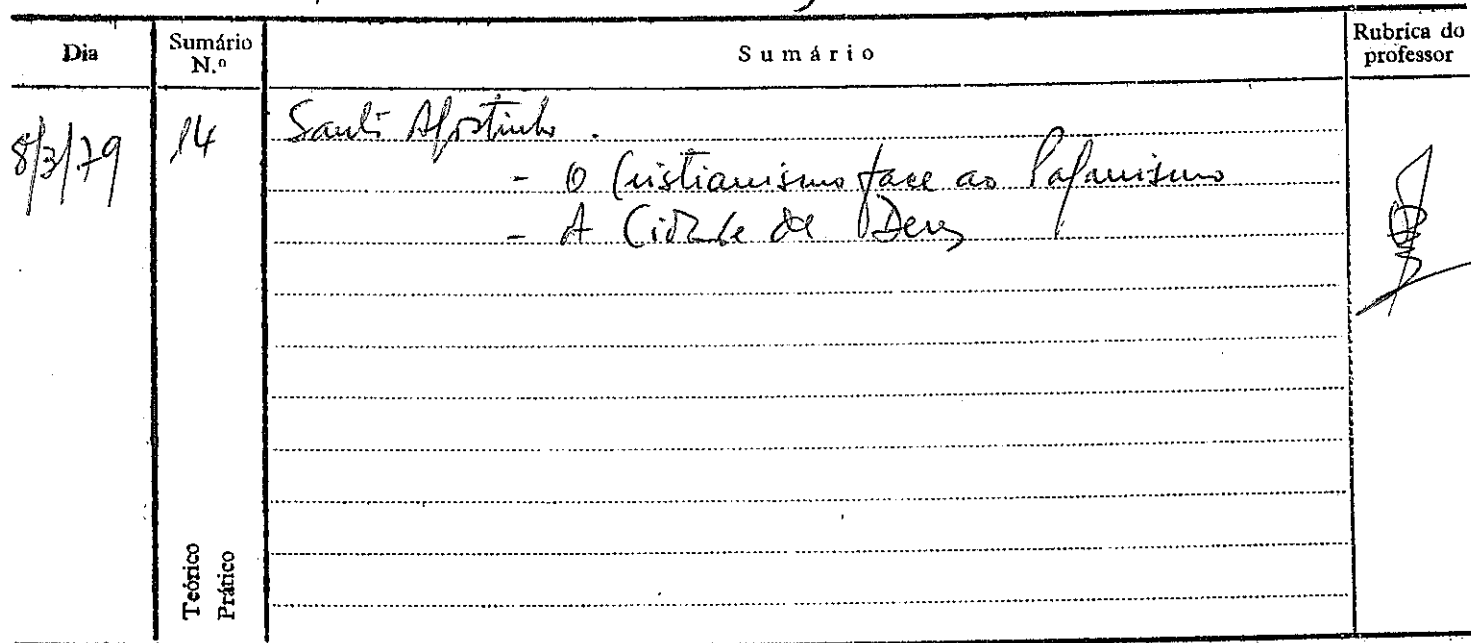 Dia Sumário N.º Sumário Rubrica do professor
8/3/79 14 Santo Agostinho.
- O Cristianismo face ao Paganismo
- A Cidade de Deus
Teórico
Prático